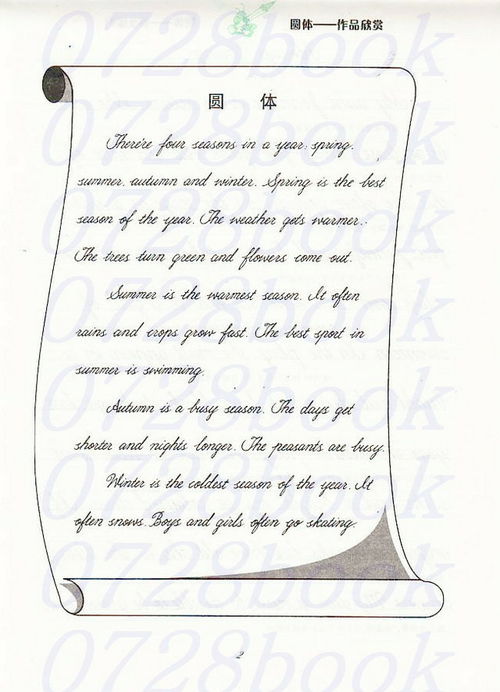 圆体——作品欣赏
圆 体
There're four seasons in a year: spring,
summer, autumn and winter. Spring is the best
season of the year. The weather gets warmer.
The trees turn green and flowers come out.
Summer is the warmest season. It often
rains and crops grow fast. The best sport in
summer is swimming.
Autumn is a busy season. The days get
shorter and nights longer. The peasants are busy.
Winter is the coldest season of the year. It
often snows. Boys and girls often go skating.
2
0728book
0728book
0728book
0728book
0728book
0728book
0728book
0728book